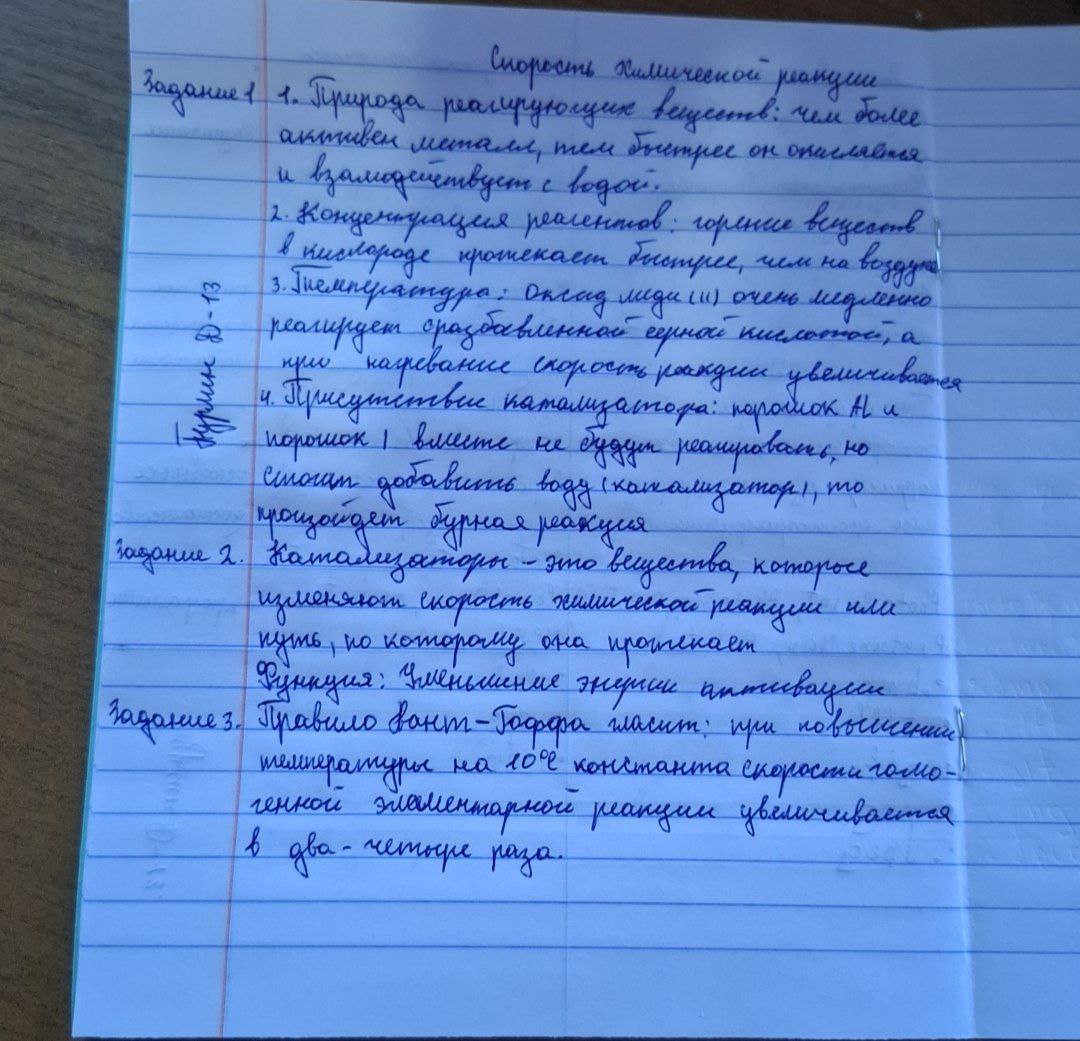 Скорость химической реакции
Задание 1 1. Природа реагирующих веществ: чем более
активен металл, тем быстрее он окисляется
и взамодействует с водой.
2. Концентрация реагентов: горение веществ
в кислороде протекает быстрее, чем на воздухе
3. Температура: оксид меди (II) очень медленно
реагирует с разбавленной серной кислотой, а
при нагревание скорость реакции увеличивается
4. Присутствие катализатора: порошок Al и
порошок I вместе не будут реагировать, но
стоит добавить воду (катализатор), то
произойдет бурная реакция
Задание 2. Катализаторы - это вещества, которые
изменяют скорость химической реакции или
путь, по которому она протекает
Функция: Уменьшение энергии активации
Задание 3. Правило Вант-Гоффа гласит: при повышении
температуры на 10°C константа скорости гомо-
генной элементарной реакции увеличивается
в два-четыре раза.
Д-13